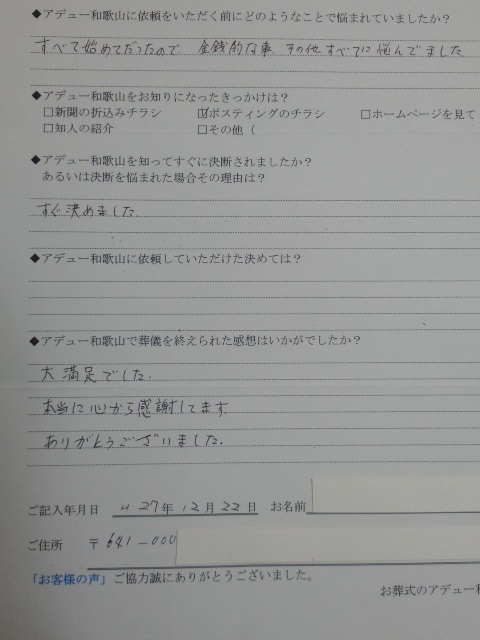 ◆アデュー和歌山に依頼をいただく前にどのようなことで悩まれていましたか？
すべて始めてだったので 金銭的な事、その他すべてに悩んでました
◆アデュー和歌山をお知りになったきっかけは？
□新聞の折込みチラシ ☑ポスティングのチラシ □ホームページを見て
□知人の紹介 □その他（
◆アデュー和歌山を知ってすぐに決断されましたか？
あるいは決断を悩まれた場合その理由は？
すぐ決めました
◆アデュー和歌山に依頼していただけた決めては？
◆アデュー和歌山で葬儀を終えられた感想はいかがでしたか？
大満足でした.
本当に心から感謝してます
ありがとうございました.
ご記入年月日 H 27年 12月 22日 お名前
ご住所 〒641-000
「お客様の声」ご協力誠にありがとうございました。
お葬式のアデュー和